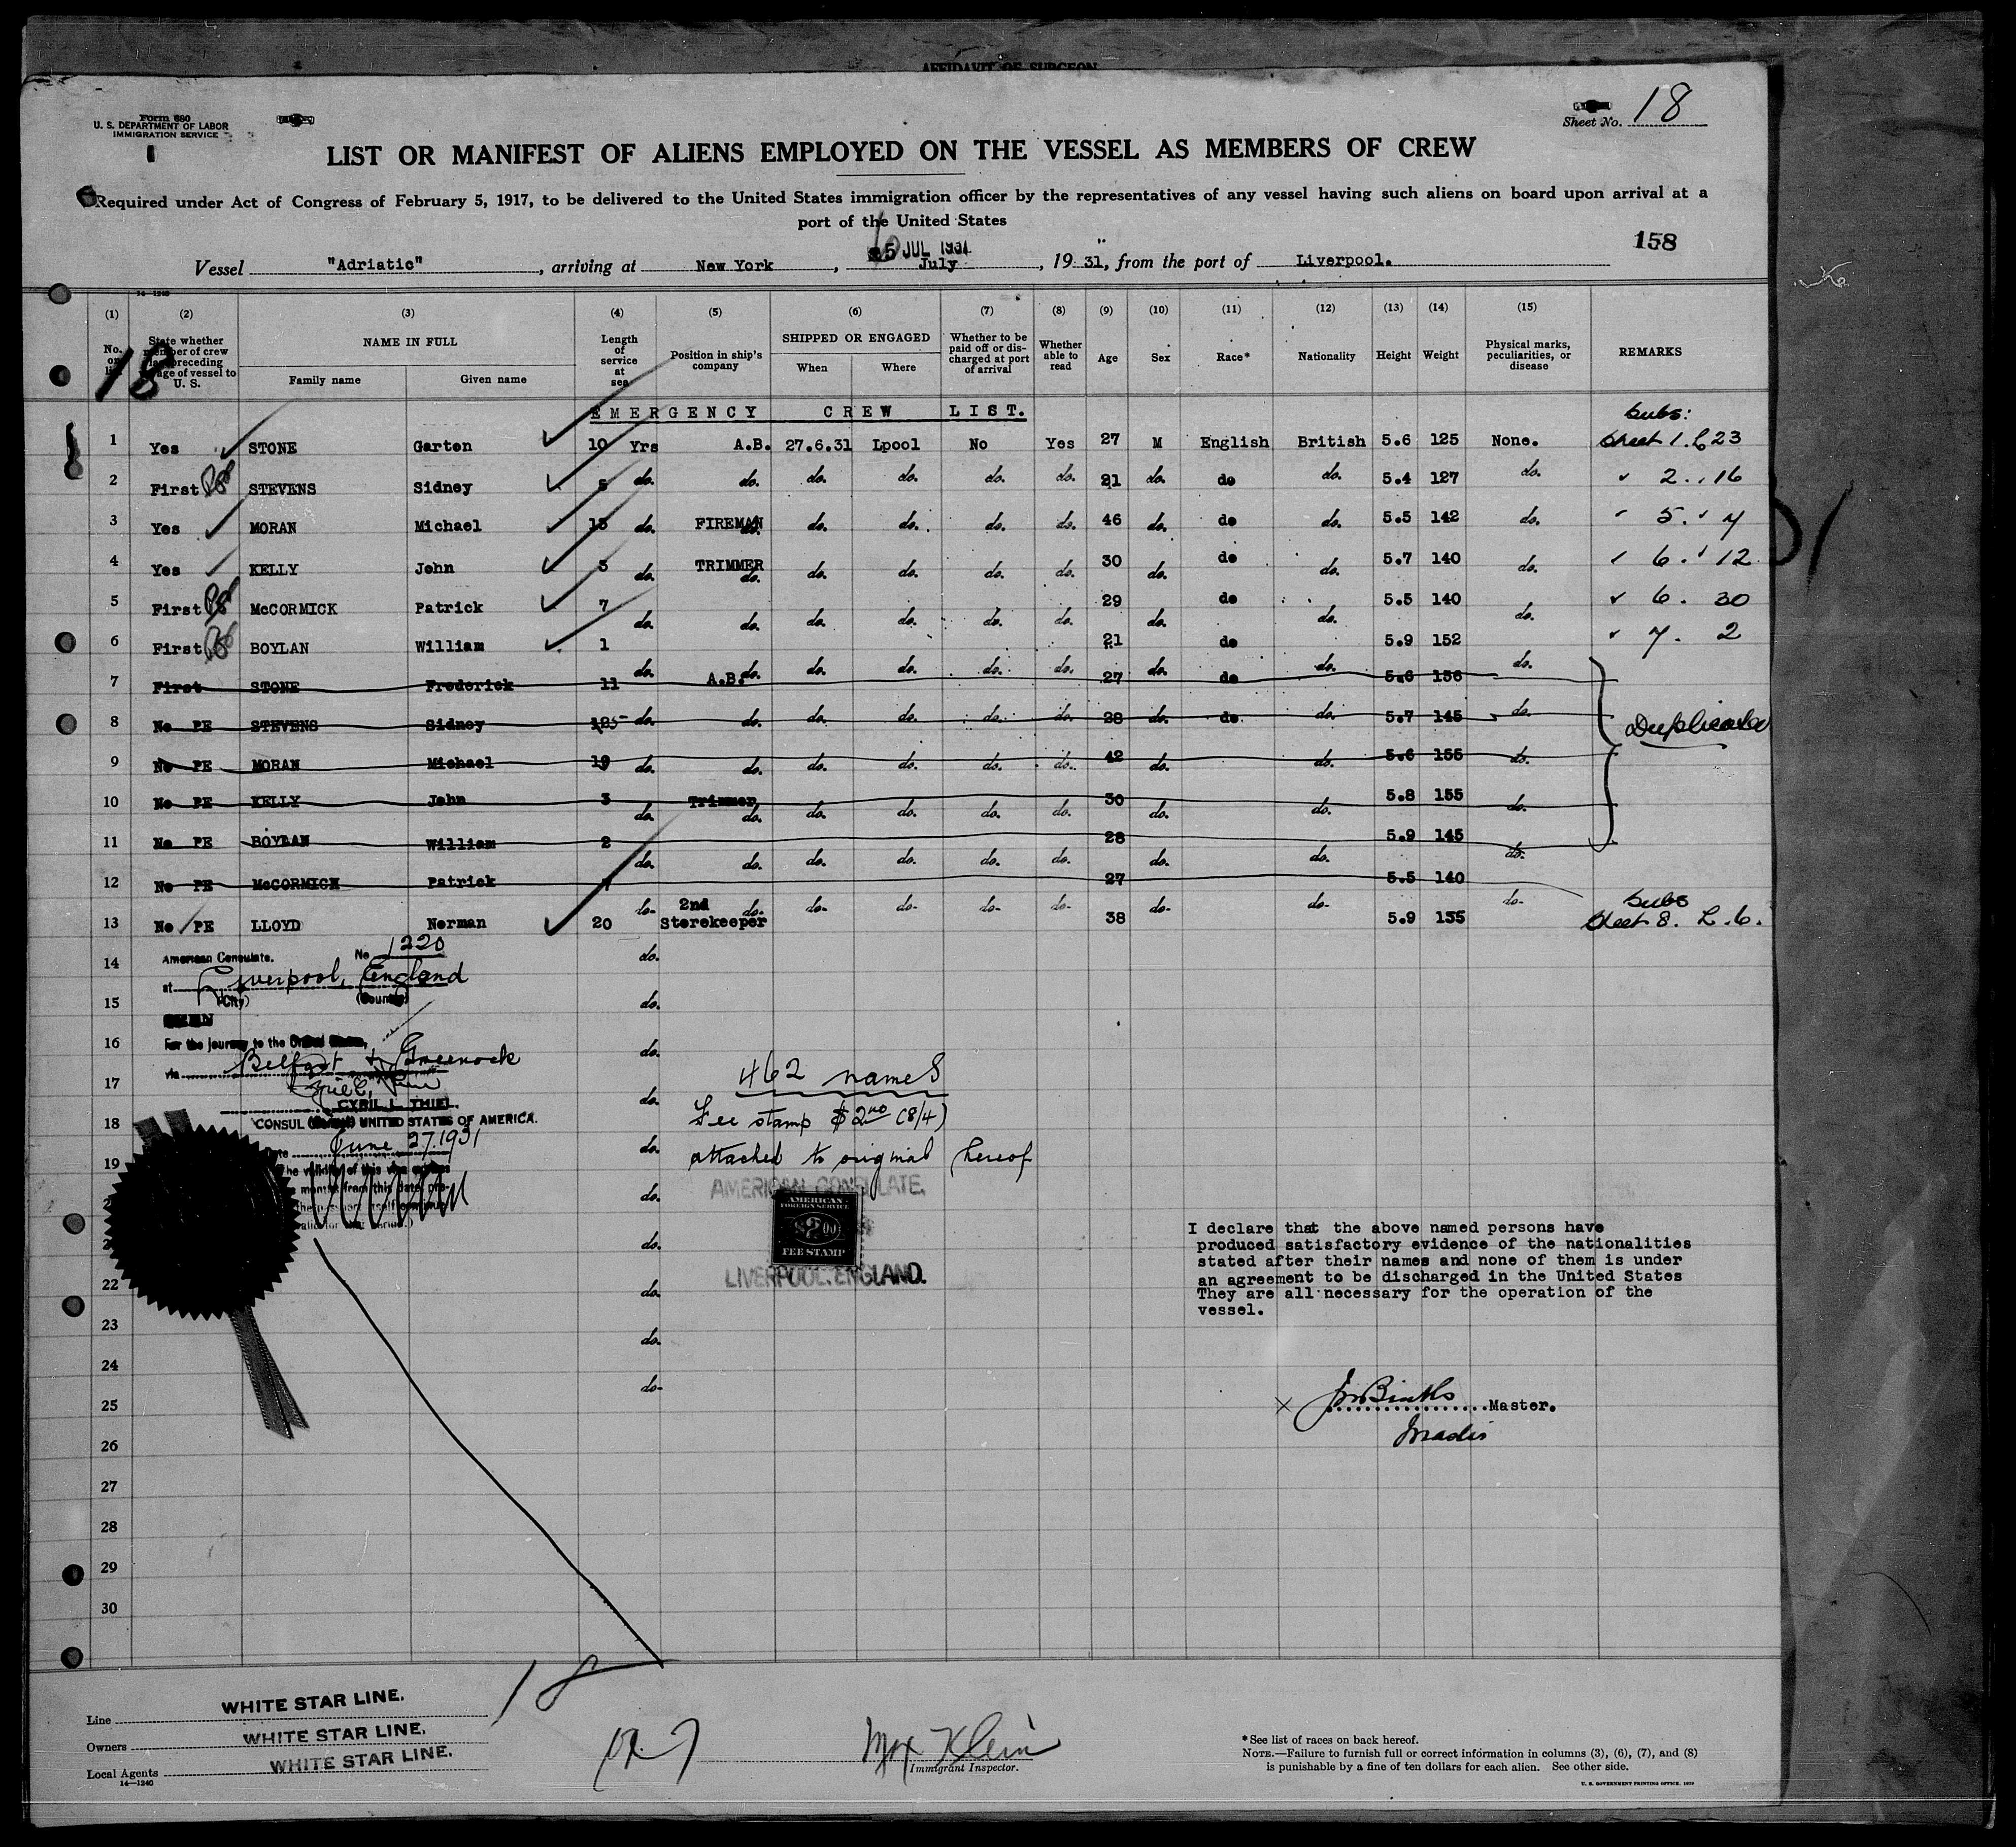 AFFIDAVIT OF SURGEON
Form 680
U. S. DEPARTMENT OF LABOR
IMMIGRATION SERVICE
Sheet No. 18
LIST OR MANIFEST OF ALIENS EMPLOYED ON THE VESSEL AS MEMBERS OF CREW
Required under Act of Congress of February 5, 1917, to be delivered to the United States immigration officer by the representatives of any vessel having such aliens on board upon arrival at a
port of the United States
158
5 JUL 1931
Vessel "Adriatic", arriving at New York, July, 1931, from the port of Liverpool.
14—1240
(1) (2) (3) (4) (5) (6) (7) (8) (9) (10) (11) (12) (13) (14) (15)
No. on list State whether member of crew on preceding voyage of vessel to U. S. NAME IN FULL Family name Given name Length of service at sea Position in ship's company SHIPPED OR ENGAGED When Where Whether to be paid off or discharged at port of arrival Whether able to read Age Sex Race* Nationality Height Weight Physical marks, peculiarities, or disease REMARKS
18
EMERGENCY CREW LIST.
Subs:
1 Yes STONE Garten 10 Yrs A.B. 27.6.31 Lpool No Yes 27 M English British 5.6 125 None. Sheet 1. L 23
2 First STEVENS Sidney 5 do. do. do. do. do. do. 21 do. do do. 5.4 127 do. 2. 16
3 Yes MORAN Michael 15 do. FIREMAN do. do. do. do. do. 46 do. do do. 5.5 142 do. 5. 7
4 Yes KELLY John 3 do. TRIMMER do. do. do. do. do. 30 do. do do. 5.7 140 do. 6. 12
5 First McCORMICK Patrick 7 do. do. do. do. do. do. 29 do. do do. 5.5 140 do. 6. 30
6 First BOYLAN William 1 do. do. do. do. do. do. 21 do. do do. 5.9 152 do. 7. 2
7 First STONE Frederick 11 A.B. 27 do 5.6 156
8 No PE STEVENS Sidney do. do. do. do. do. do. 28 do. do. do. 5.7 145 do. Duplicate
9 No PE MORAN Michael 19 do. do. do. do. do. do. 42 do. do. 5.6 155 do.
10 No PE KELLY John 3 do. Trimmer do. do. do. do. do. 30 do. do. 5.8 155 do.
11 No PE BOYLAN William 2 do. do. do. do. do. do. 28 do. do. 5.9 145 do.
12 No PE McCORMICK Patrick 7 27 5.5 140
Subs
13 No PE LLOYD Norman 20 do. 2nd Storekeeper do. do. do. do. do. 38 do. do. 5.9 135 do. Sheet 8. L. 6.
14 do.
American Consulate. No 1220
at Liverpool, England
(City) (Country)
15 do.
16 do.
For the journey to the United States,
via Belfast & Greenock
17 do.
CYRIL L. THIEL.
18 do.
CONSUL UNITED STATES OF AMERICA.
Date June 27. 1931
19 do.
The validity of this visa
months from this date
462 names
Fee stamp $2.00 (8/4)
attached to original hereof
AMERICAN CONSULATE.
AMERICAN
FOREIGN SERVICE
$2.00
FEE STAMP
LIVERPOOL. ENGLAND.
do.
do.
22 do.
23 do.
24
25 do.
26
27
28
29
30
I declare that the above named persons have
produced satisfactory evidence of the nationalities
stated after their names and none of them is under
an agreement to be discharged in the United States
They are all necessary for the operation of the
vessel.
Master.
18
Line WHITE STAR LINE.
Owners WHITE STAR LINE.
Local Agents WHITE STAR LINE.
14—1240
Max Klein
Immigrant Inspector.
*See list of races on back hereof.
NOTE.—Failure to furnish full or correct information in columns (3), (6), (7), and (8)
is punishable by a fine of ten dollars for each alien. See other side.
U. S. GOVERNMENT PRINTING OFFICE: 1929